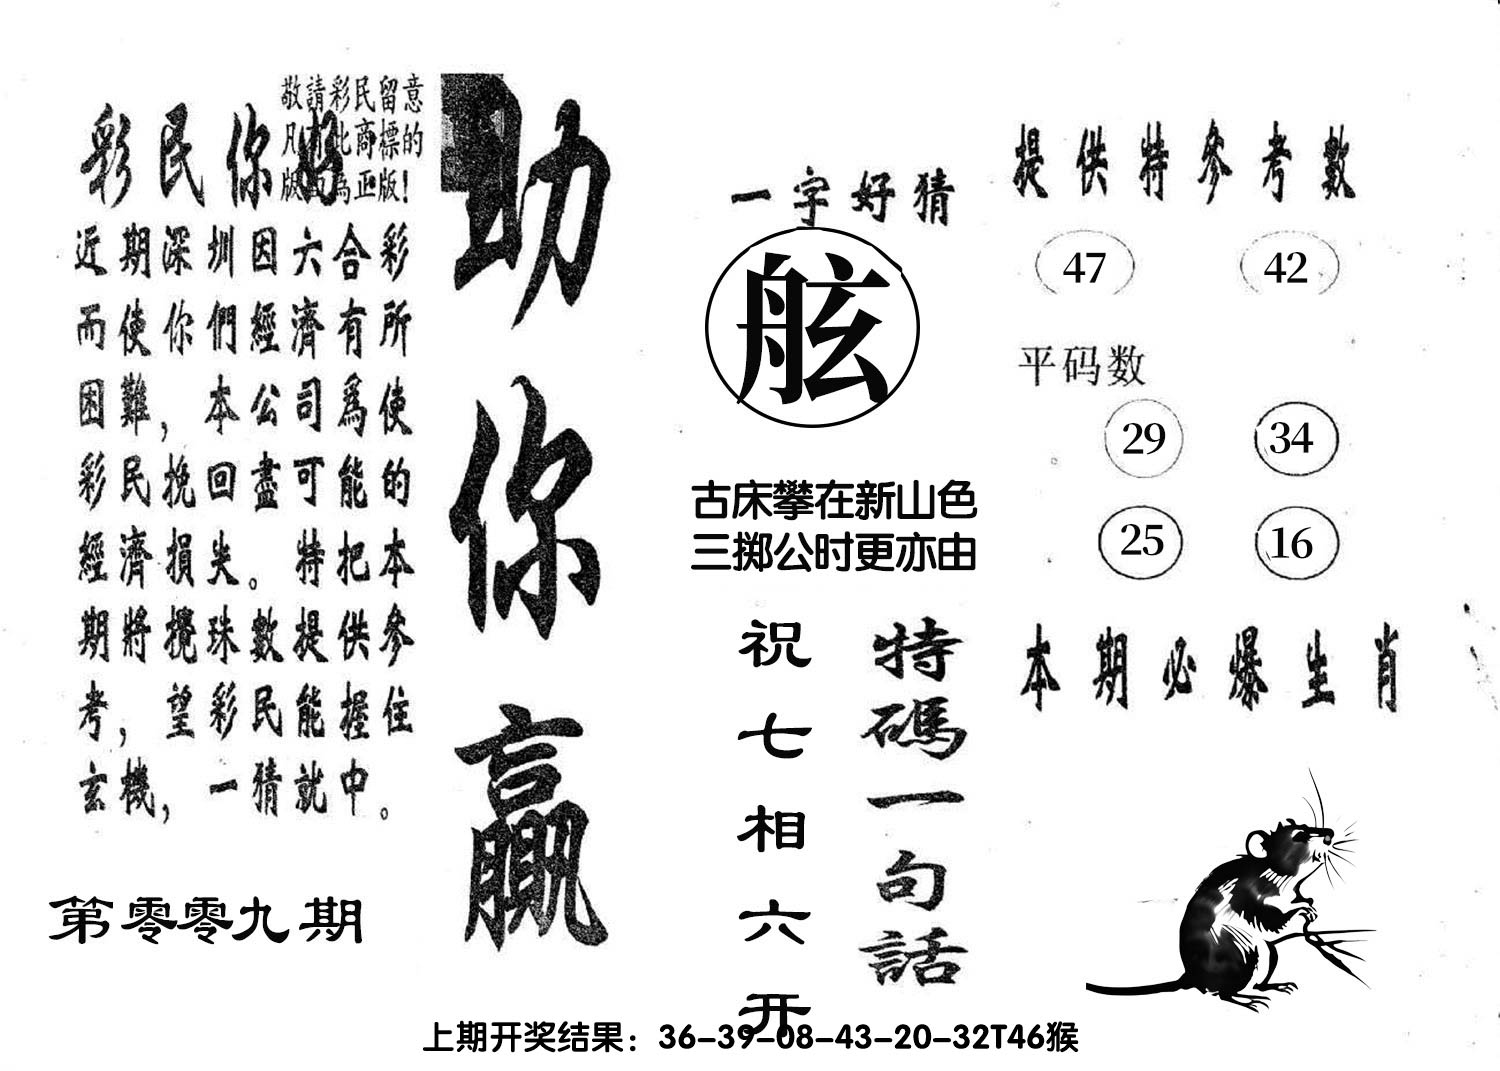 敬請彩民留意
凡有此商標的
版面為正版!
彩民你好
近期深圳因六合彩
而使你們經濟有所
困難，本公司爲使
彩民挽回盡可能的
經濟損失。特把本
期將攪珠數提供參
考，望彩民能握住
玄機，一猜就中。
第零零九期
助你贏
一字好猜
舷
古床攀在新山色
三掷公时更亦由
特碼一句話
祝七相六开
提供特參考數
47 42
平码数
29 34
25 16
本期必爆生肖
上期开奖结果：36-39-08-43-20-32T46猴